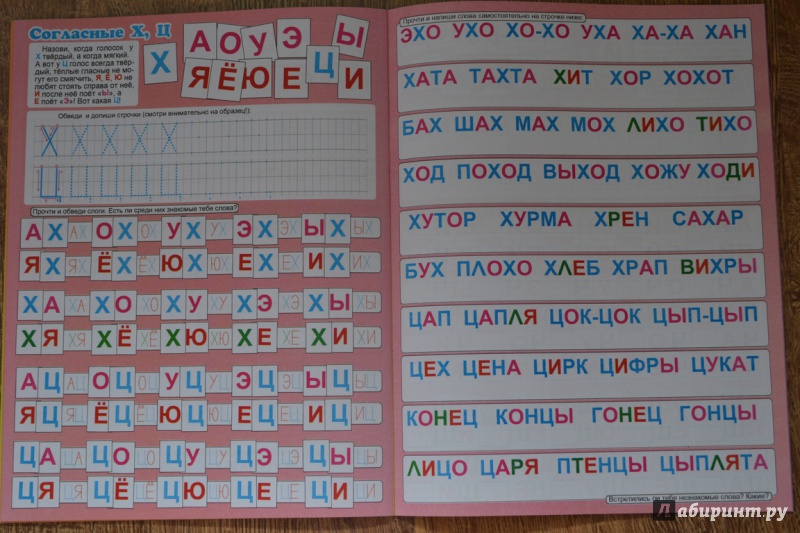 Согласные Х, Ц
Назови, когда голосок у
Х твёрдый, а когда мягкий.
А вот у Ц голос всегда твёр-
дый, тёплые гласные не мо-
гут его смягчить, Я, Ё, Ю не
любят стоять справа от неё,
И после неё поёт «Ы», а
Е поёт «Э»! Вот какая Ц!
Х А О У Э Ы
Я Ё Ю Е Ц И
Обведи и допиши строчки (смотри внимательно на образец!):
Х Х Х Х Х
Ц Ц Ц Ц Ц
Прочти и обведи слоги. Есть ли среди них знакомые тебе слова?
АХ АХ ОХ ОХ УХ УХ ЭХ ЭХ ЫХ ЫХ
ЯХ ЯХ ЁХ ЁХ ЮХ ЮХ ЕХ ЕХ ИХ ИХ
ХА ХА ХО ХО ХУ ХУ ХЭ ХЭ ХЫ ХЫ
ХЯ ХЯ ХЁ ХЁ ХЮ ХЮ ХЕ ХЕ ХИ ХИ
АЦ АЦ ОЦ ОЦ УЦ УЦ ЭЦ ЭЦ ЫЦ ЫЦ
ЯЦ ЯЦ ЁЦ ЁЦ ЮЦ ЮЦ ЕЦ ЕЦ ИЦ ИЦ
ЦА ЦА ЦО ЦО ЦУ ЦУ ЦЭ ЦЭ ЦЫ ЦЫ
ЦЯ ЦЯ ЦЁ ЦЁ ЦЮ ЦЮ ЦЕ ЦЕ ЦИ ЦИ
Прочти и напиши слова самостоятельно на строчке ниже:
ЭХО УХО ХО-ХО УХА ХА-ХА ХАН
ХАТА ТАХТА ХИТ ХОР ХОХОТ
БАХ ШАХ МАХ МОХ ЛИХО ТИХО
ХОД ПОХОД ВЫХОД ХОЖУ ХОДИ
ХУТОР ХУРМА ХРЕН САХАР
БУХ ПЛОХО ХЛЕБ ХРАП ВИХРЫ
ЦАП ЦАПЛЯ ЦОК-ЦОК ЦЫП-ЦЫП
ЦЕХ ЦЕНА ЦИРК ЦИФРЫ ЦУКАТ
КОНЕЦ КОНЦЫ ГОНЕЦ ГОНЦЫ
ЛИЦО ЦАРЯ ПТЕНЦЫ ЦЫПЛЯТА
Встретились ли тебе незнакомые слова? Какие?
Лабиринт.ру